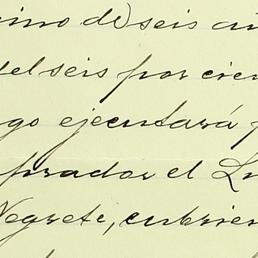 ino de seis añ
del seis por cien
go ejecutará p
prador el Lu
Negrete, cubrien